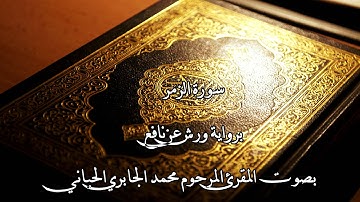 سورة الزمر
برواية ورش عن نافع
بصوت المقرئ المرحوم محمد الجابري الحياني